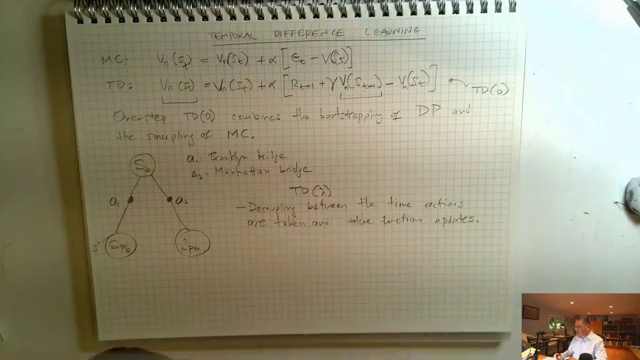 TEMPORAL DIFFERENCE LEARNING
MC: Vπ(St) = Vπ(St) + α [Gt - V(St)]
TD: Vπ(St) = Vπ(St) + α [Rt+1 + γ Vπ(St+1) - Vπ(St)] TD(0)
One-step TD(0) combines the bootstrapping of DP and
the sampling of MC.
S6 a1: Brooklyn bridge
a2: Manhattan bridge
TD(λ)
a1 a2 - Decoupling between the time actions
are taken and value function updates.
s'